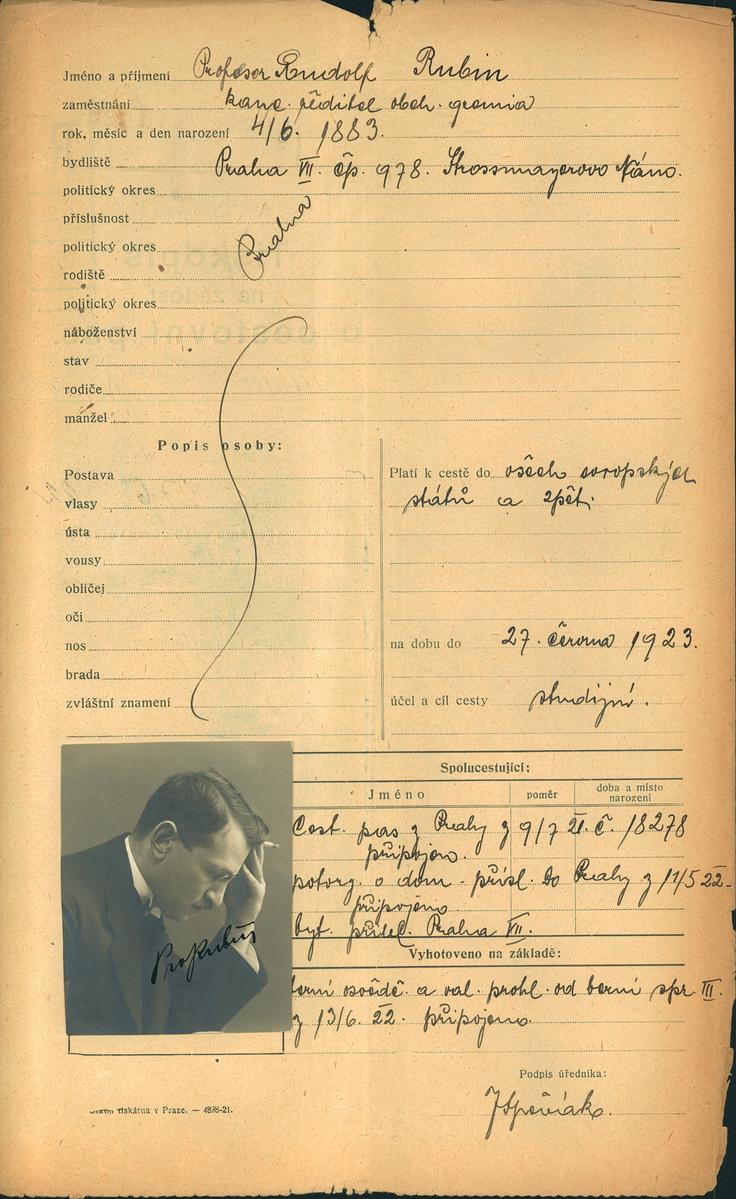 Jméno a příjmení Profesor Rudolf Rubin
zaměstnání kanc. ředitel obch. gremia
rok, měsíc a den narození 4/6. 1883.
bydliště Praha VII. čp. 978. Strossmayerovo Nám.
politický okres
příslušnost Praha
politický okres
rodiště
politický okres
náboženství
stav
rodiče
manžel
Popis osoby:
Postava
vlasy
ústa
vousy
obličej
oči
nos
brada
zvláštní znamení
Platí k cestě do všech evropských
států a zpět.
na dobu do 27. června 1923.
účel a cíl cesty studijní.
Spolucestující:
Jméno poměr doba a místo narození
Cest. pas z Prahy z 9/7 21. č. 18278
připojen.
potvrz. o dom. přísl. do Prahy z 11/5 22-
připojeno.
byt. přihl. Praha VII.
Vyhotoveno na základě:
berní osvědč. a val. prohl. od berní spr. III.
z 13/6. 22. připojeno.
Podpis úředníka:
tiskárna v Praze. — 4898-21.